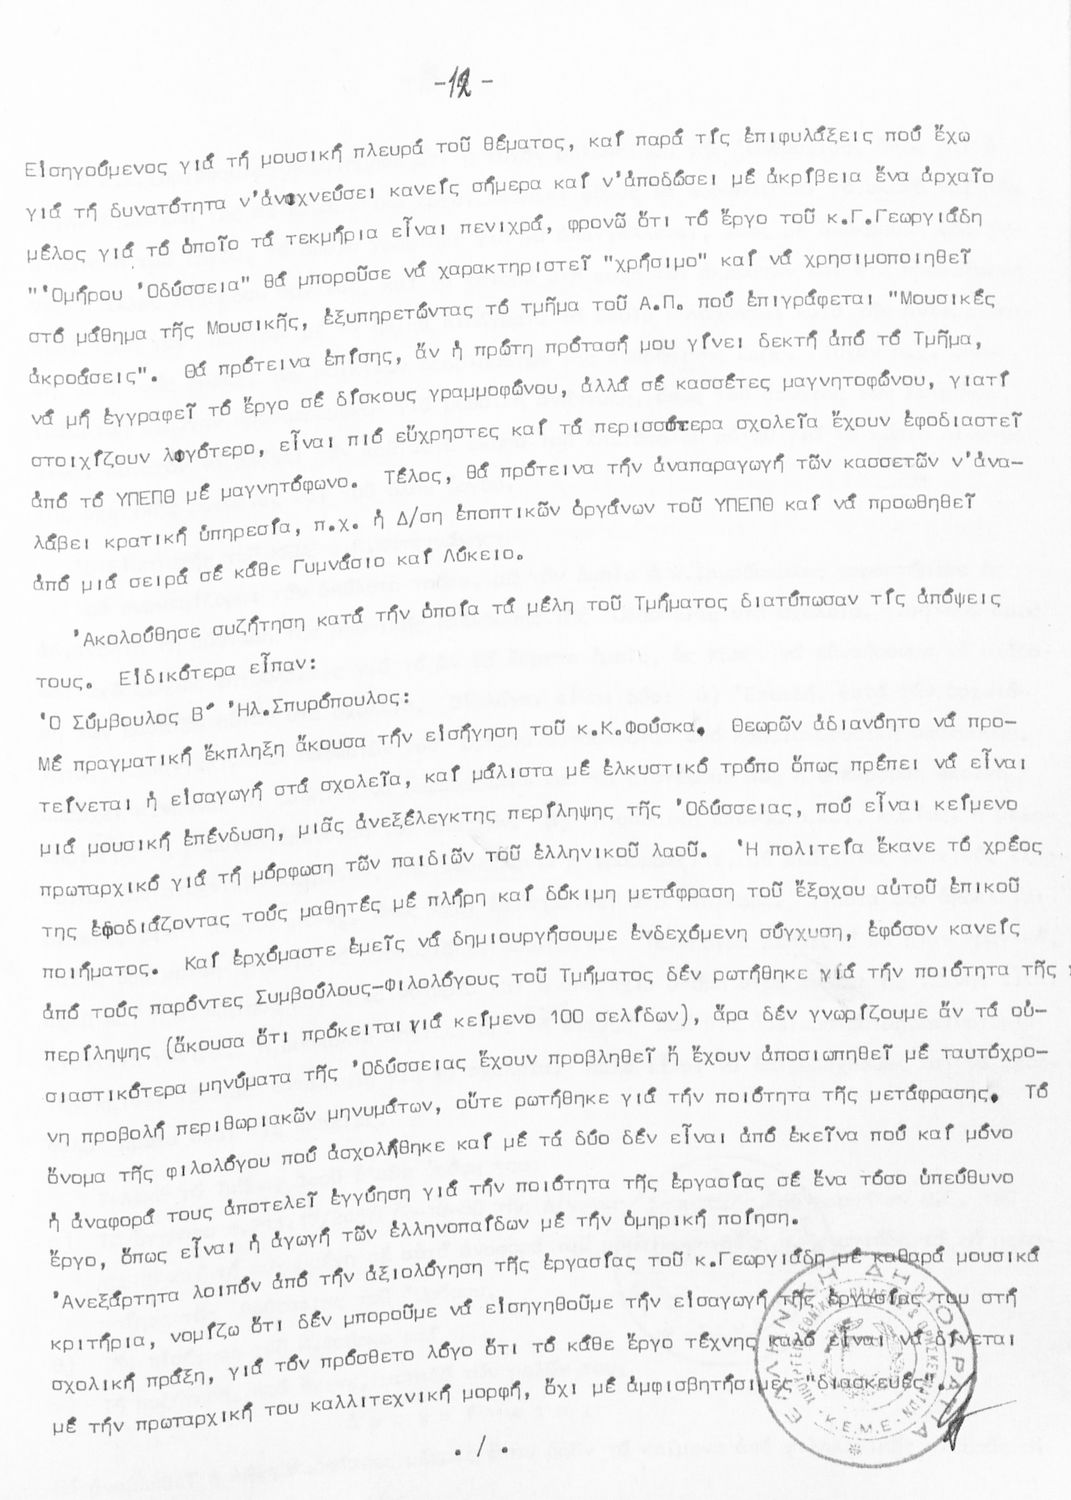 -12-
Εἰσηγούμενος γιά τή μουσική πλευρά τοῦ θέματος, καί παρά τίς ἐπιφυλάξεις πού ἔχω
γιά τή δυνατότητα ν'ἀνιχνεύσει κανείς σήμερα καί ν'ἀποδώσει μέ ἀκρίβεια ἕνα ἀρχαῖο
μέλος γιά τό ὁποῖο τά τεκμήρια εἶναι πενιχρά, φρονῶ ὅτι τό ἔργο τοῦ κ.Γ.Γεωργιάδη
"'Ομήρου 'Οδύσσεια" θά μποροῦσε νά χαρακτηριστεῖ "χρήσιμο" καί νά χρησιμοποιηθεῖ
στό μάθημα τῆς Μουσικῆς, ἐξυπηρετώντας τό τμῆμα τοῦ Α.Π. πού ἐπιγράφεται "Μουσικές
ἀκροάσεις". Θά πρότεινα ἐπίσης, ἄν ἡ πρώτη πρότασή μου γίνει δεκτή ἀπό τό Τμῆμα,
νά μή ἐγγραφεῖ τό ἔργο σέ δίσκους γραμμοφώνου, ἀλλά σέ κασσέτες μαγνητοφώνου, γιατί
στοιχίζουν λιγότερο, εἶναι πιό εὔχρηστες καί τά περισσότερα σχολεῖα ἔχουν ἐφοδιαστεῖ
ἀπό τό ΥΠΕΠΘ μέ μαγνητόφωνο. Τέλος, θά πρότεινα τήν ἀναπαραγωγή τῶν κασσετῶν ν'ἀνα-
λάβει κρατική ὑπηρεσία, π.χ. ἡ Δ/ση ἐποπτικῶν ὀργάνων τοῦ ΥΠΕΠΘ καί νά προωθηθεῖ
ἀπό μιά σειρά σέ κάθε Γυμνάσιο καί Λύκειο.
'Ακολούθησε συζήτηση κατά τήν ὁποία τά μέλη τοῦ Τμήματος διατύπωσαν τίς ἀπόψεις
τους. Εἰδικότερα εἶπαν:
'Ο Σύμβουλος Β´ 'Ηλ.Σπυρόπουλος:
Μέ πραγματική ἔκπληξη ἄκουσα τήν εἰσήγηση τοῦ κ.Κ.Φούσκα. Θεωρῶν ἀδιανόητο νά προ-
τείνεται ἡ εἰσαγωγή στά σχολεῖα, καί μάλιστα μέ ἑλκυστικό τρόπο ὅπως πρέπει νά εἶναι
μιά μουσική ἐπένδυση, μιᾶς ἀνεξέλεγκτης περίληψης τῆς 'Οδύσσειας, πού εἶναι κείμενο
πρωταρχικό γιά τή μόρφωση τῶν παιδιῶν τοῦ ἑλληνικοῦ λαοῦ. 'Η πολιτεία ἔκανε τό χρέος
της ἐφοδιάζοντας τούς μαθητές μέ πλήρη καί δόκιμη μετάφραση τοῦ ἔξοχου αὐτοῦ ἐπικοῦ
ποιήματος. Καί ἐρχόμαστε ἐμεῖς νά δημιουργήσουμε ἐνδεχόμενη σύγχυση, ἐφόσον κανείς
ἀπό τούς παρόντες Συμβούλους-Φιλολόγους τοῦ Τμήματος δέν ρωτήθηκε γιά τήν ποιότητα τῆς
περίληψης (ἄκουσα ὅτι πρόκειται γιά κείμενο 100 σελίδων), ἄρα δέν γνωρίζουμε ἄν τά οὐ-
σιαστικότερα μηνύματα τῆς 'Οδύσσειας ἔχουν προβληθεῖ ἤ ἔχουν ἀποσιωπηθεῖ μέ ταυτόχρο-
νη προβολή περιθωριακῶν μηνυμάτων, οὔτε ρωτήθηκε γιά τήν ποιότητα τῆς μετάφρασης. Τό
ὄνομα τῆς φιλολόγου πού ἀσχολήθηκε καί μέ τά δύο δέν εἶναι ἀπό ἐκεῖνα πού καί μόνο
ἡ ἀναφορά τους ἀποτελεῖ ἐγγύηση γιά τήν ποιότητα τῆς ἐργασίας σέ ἕνα τόσο ὑπεύθυνο
ἔργο, ὅπως εἶναι ἡ ἀγωγή τῶν ἑλληνοπαίδων μέ τήν ὁμηρική ποίηση.
'Ανεξάρτητα λοιπόν ἀπό τήν ἀξιολόγηση τῆς ἐργασίας τοῦ κ.Γεωργιάδη μέ καθαρά μουσικά
κριτήρια, νομίζω ὅτι δέν μποροῦμε νά εἰσηγηθοῦμε τήν εἰσαγωγή τῆς ἐργασίας του στή
σχολική πράξη, γιά τόν πρόσθετο λόγο ὅτι τό κάθε ἔργο τέχνης καλό εἶναι νά δίνεται
μέ τήν πρωταρχική του καλλιτεχνική μορφή, ὄχι μέ ἀμφισβητήσιμες "διασκευές".
./.
ΕΛΛΗΝΙΚΗ ΔΗΜΟΚΡΑΤΙΑ
Κ.Ε.Μ.Ε.